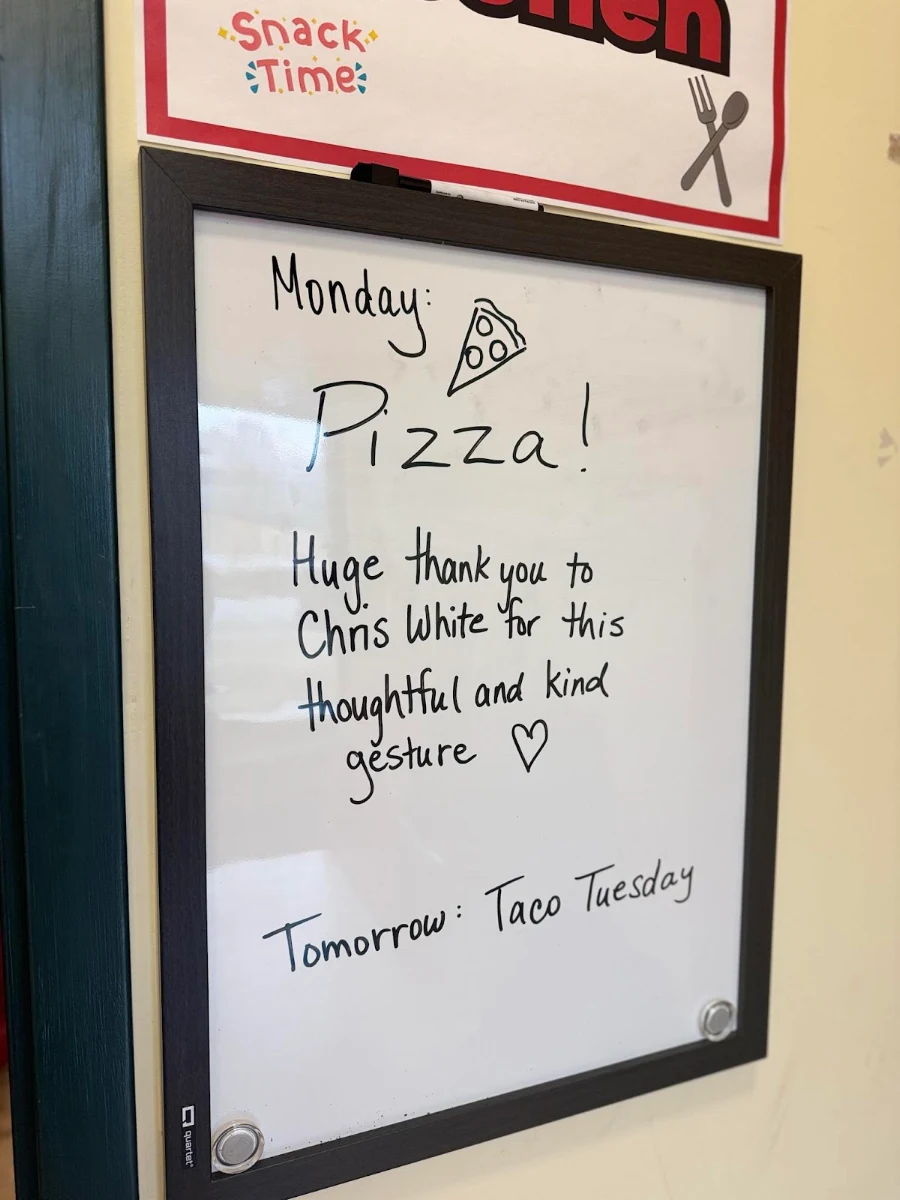 Snack
Time
Monday:
Pizza!
Huge thank you to
Chris White for this
thoughtful and kind
gesture ♡
Tomorrow: Taco Tuesday
quartet